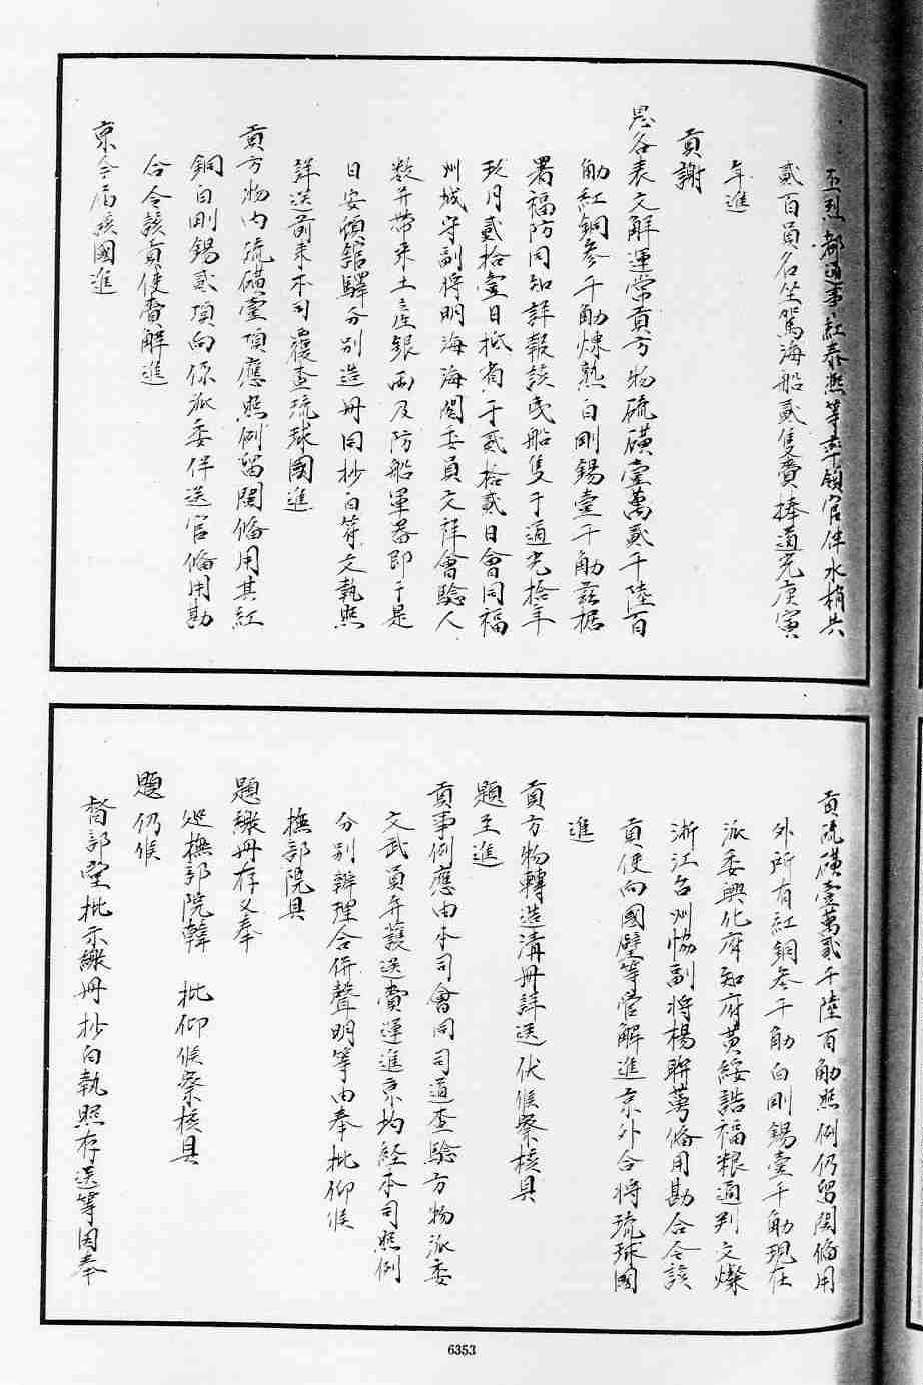 丕烈都通事紅泰熙等率領官伴水梢共
貳百員名坐駕海船貳隻賫捧道光庚寅
年進
貢謝
恩各表文解運常貢方物硫磺壹萬貳千陸百
觔紅銅參千觔煉熟白剛錫壹千觔茲據
署福防同知詳報該夷船隻于道光拾年
玖月貳拾壹日抵省于貳拾貳日會同福
州城守副將明海海關委員文祥會驗人
數并帶來土產銀兩及防船軍器即于是
日安頓館驛分別造冊同抄白符文執照
詳送前來本司覆查琉球國進
貢方物內硫磺壹項應照例留閩備用其紅
銅白剛錫貳項向係派委伴送官備用勘
合令該貢使賫解進
京今屆該國進
貢硫磺壹萬貳千陸百觔照例仍留閩備用
外所有紅銅參千觔白剛錫壹千觔現在
派委興化府知府黃綏誥福糧通判文燦
浙江台州協副將楊聯萬備用勘合令該
貢使向國璧等管解進京外合將琉球國
進
貢方物轉造清冊詳送伏候察核具
題至進
貢事例應由本司會同司道查驗方物派委
文武員弁護送賫運進京均經本司照例
分別辦理合併聲明等由奉批仰候
撫部院具
題繳冊存又奉
巡撫部院韓 批仰候察核具
題仍候
督部堂批示繳冊抄白執照存送等因奉
6353